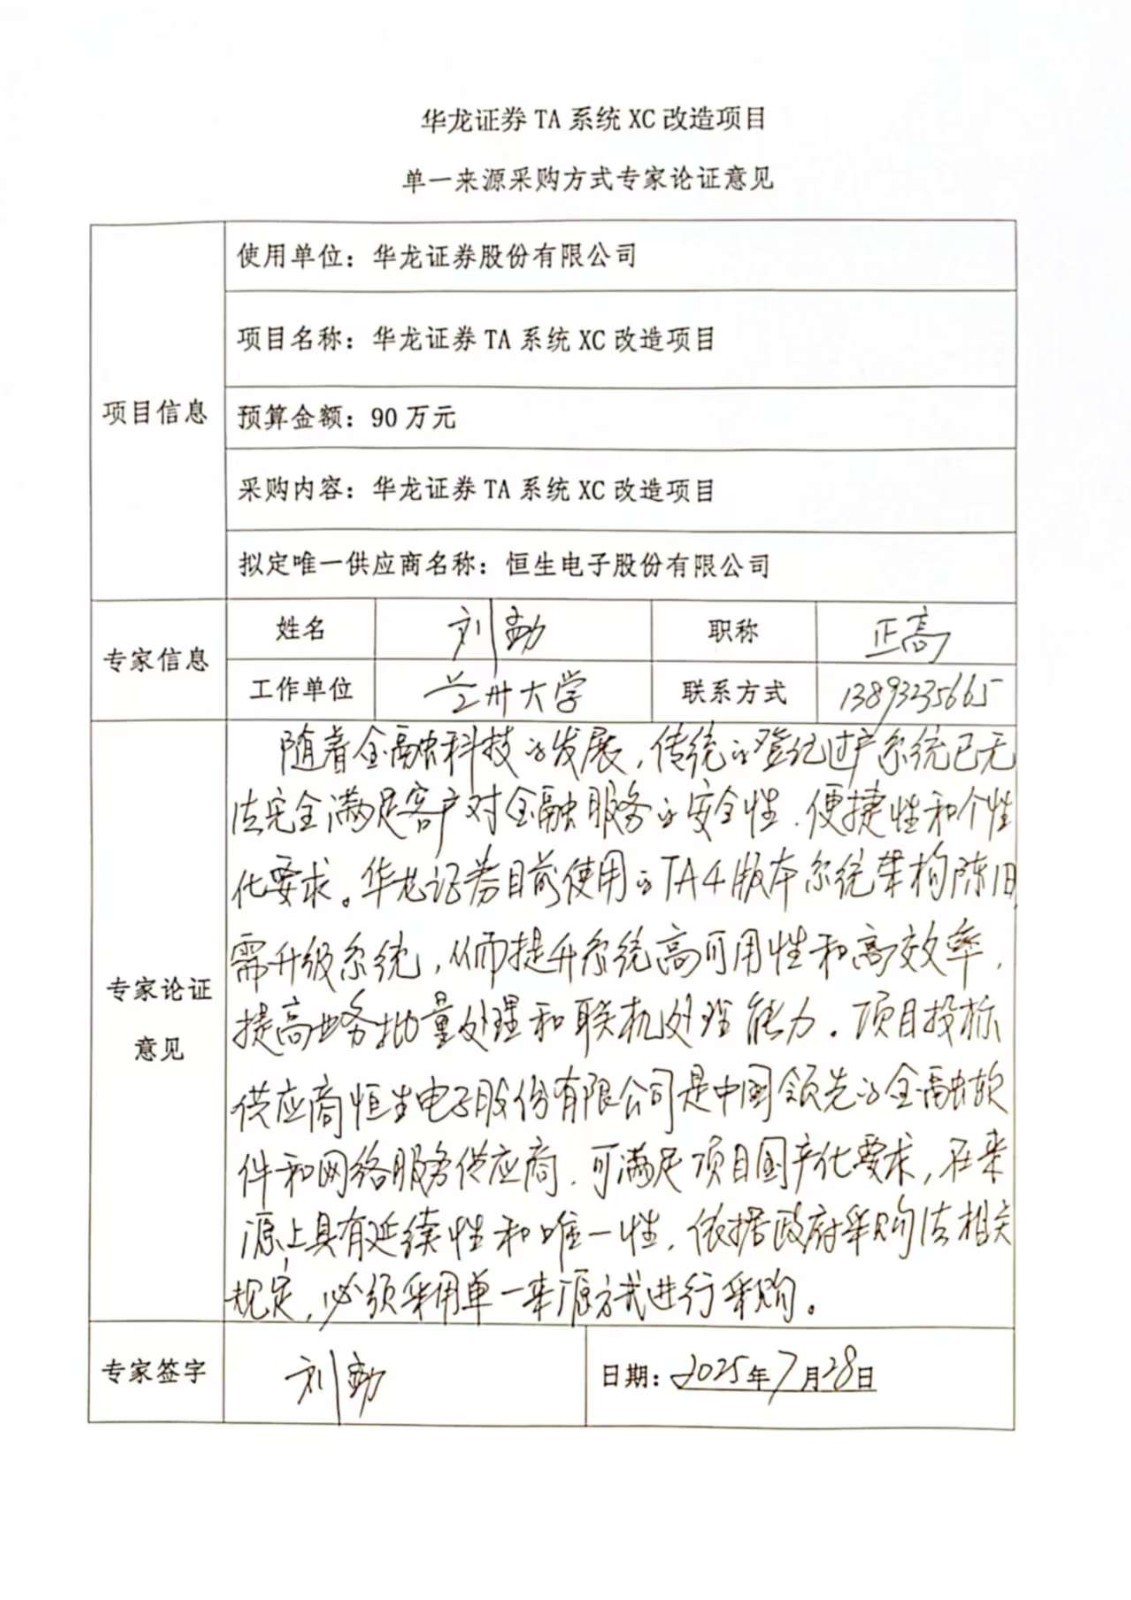 华龙证券 TA 系统 XC 改造项目
单一来源采购方式专家论证意见
项目信息
使用单位：华龙证券股份有限公司
项目名称：华龙证券 TA 系统 XC 改造项目
预算金额：90 万元
采购内容：华龙证券 TA 系统 XC 改造项目
拟定唯一供应商名称：恒生电子股份有限公司
专家信息
姓名 刘勤 职称 正高
工作单位 兰州大学 联系方式 13893235665
专家论证
意见
随着金融科技的发展，传统的登记过户系统已无
法完全满足客户对金融服务的安全性、便捷性和个性
化要求。华龙证券目前使用的TA4版本系统架构陈旧，
需升级系统，从而提升系统高可用性和高效率，
提高业务批量处理和联机处理能力。项目投标
供应商恒生电子股份有限公司是中国领先的金融软
件和网络服务供应商，可满足项目国产化要求，在来
源上具有延续性和唯一性，依据政府采购法相关
规定，必须采用单一来源方式进行采购。
专家签字 刘勤 日期：2025年7月28日